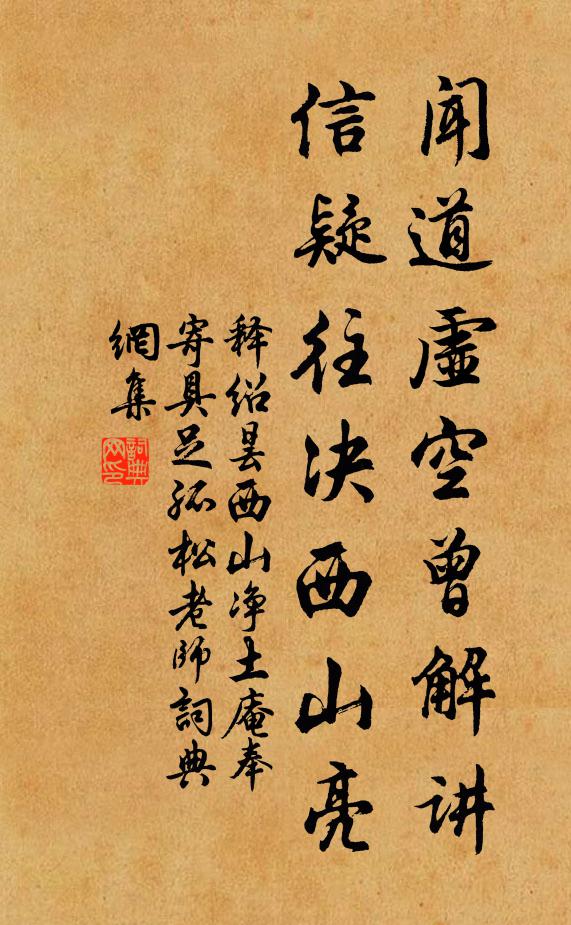 闻道虚空曾解讲
信疑往决西山亮
释绍昙西山净土庵奉
寄具足孤松老师詞典
網集
詞典网印